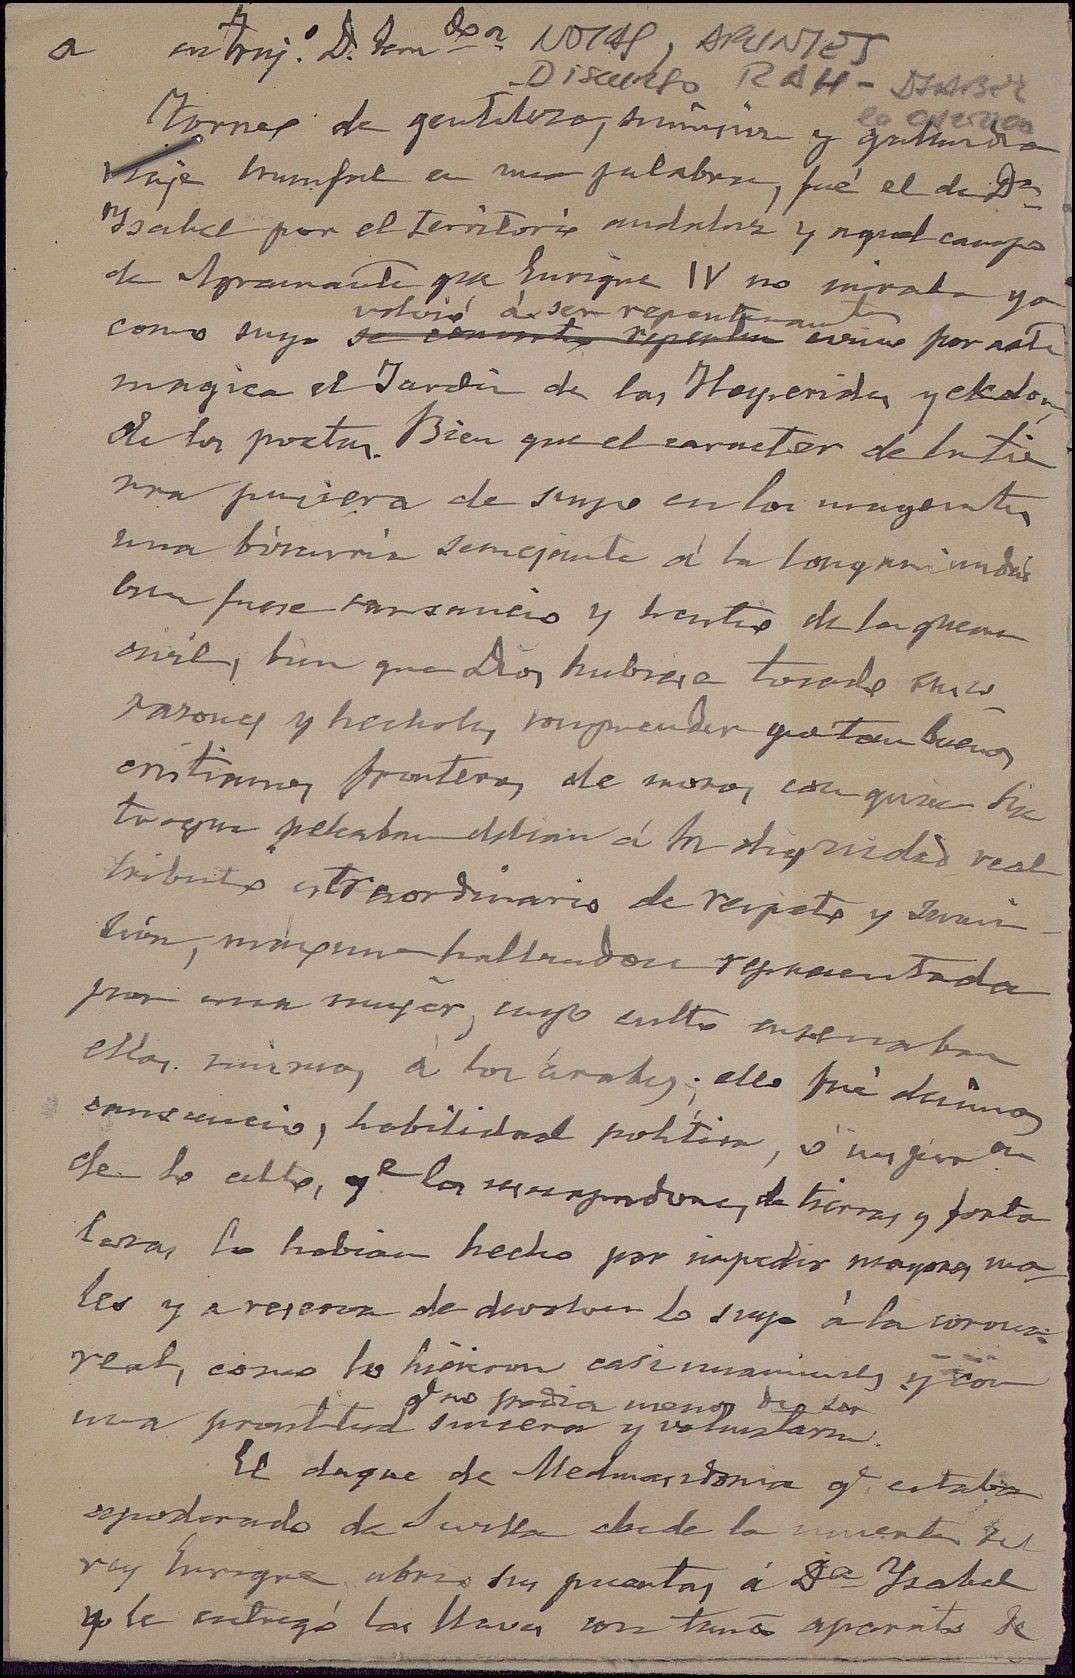 NOTAS, APUNTES
Discurso RAH -
Torneo de gentileza, y gallardia
viaje triunfal en una palabra, fué el de Dª
Ysabel por el territorio andaluz y aquel campo
de Agramante que Enrique IV no miraba ya
volvió á ser repentinamente
como suyo se convirtió repentin como por arte
magica el Jardin de las Hesperides y el edén
de los poetas. Bien que el caracter de la tie
rra pusiera de suyo en los magnates
una bizarria semejante á la longanimidad
bien fuese cansancio y hastio de la guerra
civil, bien que Dios hubiese tocado sus co
razones y hecholes comprender que tan buenos
cristianos fronteros de moros con quien
peleaban debian á la dignidad real
tributo extraordinario de respeto y sumi
sión, máxime hallandose representada
por una mujer, cuyo culto enseñaban
ellos mismos á los árabes; ello fué
cansancio, habilidad politica, ó
de lo alto, qe los usurpadores de tierras y forta
lezas lo habian hecho por impedir mayores ma-
les y a reserva de devolver lo suyo á la corona
real, como lo hicieron casi unanimes y con
qe no podia menos de ser
una prontitud sincera y voluntaria.
El duque de Medinasidonia qe estaba
apoderado de Sevilla desde la muerte del
rey Enrique abrio sus puertas á Dª Ysabel
y le entregó las llaves con tanto aparato de